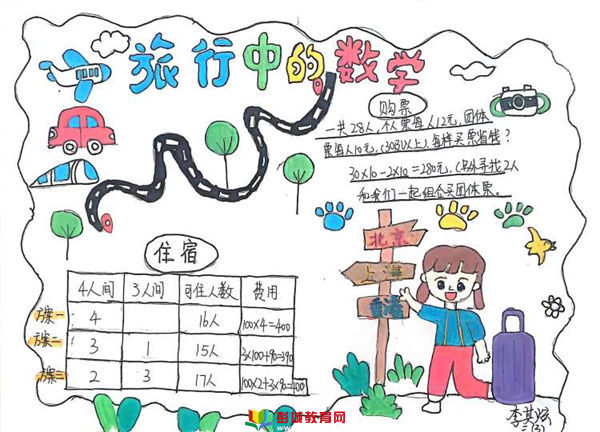 旅行中的数学
购票
一共28人,个人票每人12元,团体
票每人10元,(30及以上)怎样买票省钱?
30×10-2×10=280元,(另外寻找2人
和我们一起组合买团体票。
北京
上海
青海
住宿
4人间 3人间 可住人数 费用
方案一 4 16人 100×4=400
方案二 3 1 15人 3×100+90=390
方案三 2 3 17人 100×2+3×90=400
三(3)
教育网